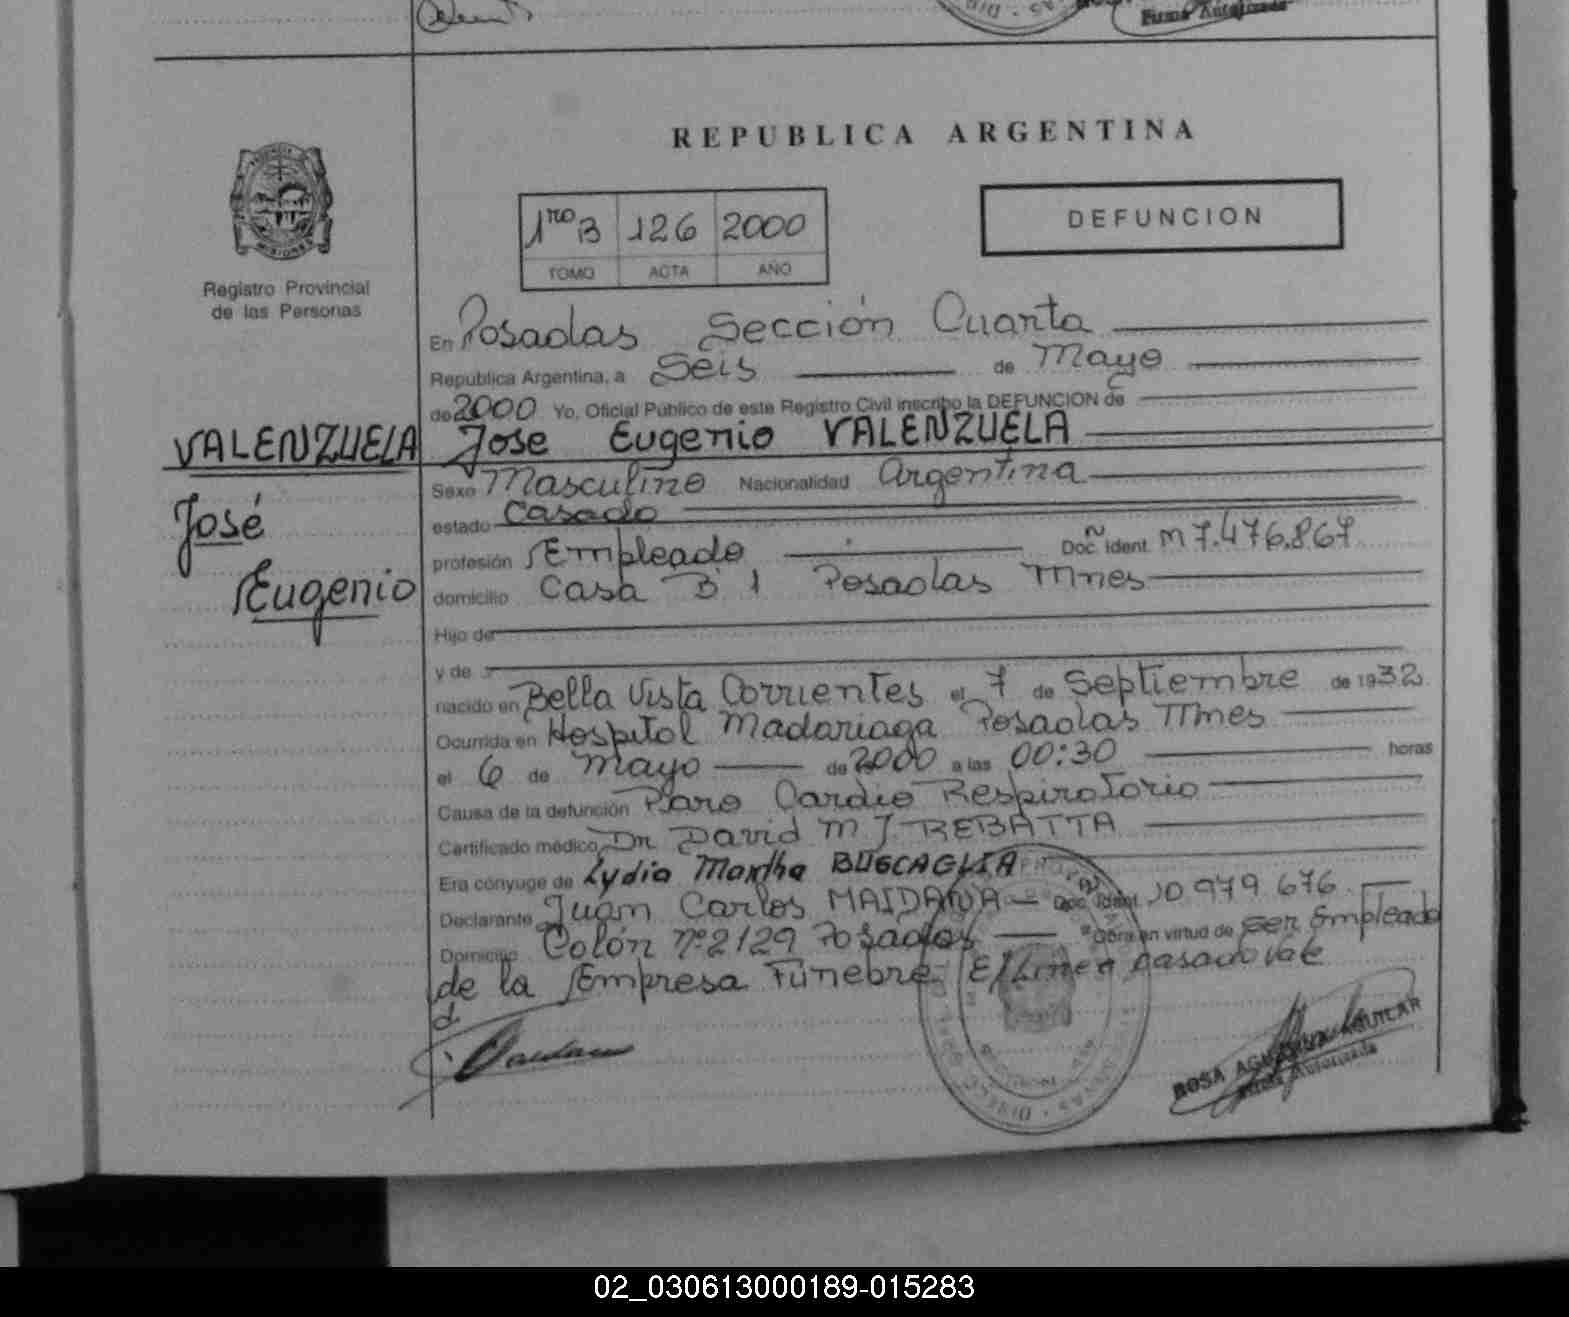 Firma Autorizada
REPUBLICA ARGENTINA
1ro B 126 2000
TOMO ACTA AÑO
DEFUNCION
Registro Provincial
de las Personas
En Posadas Sección Cuarta
Republica Argentina, a Seis de Mayo
de 2000 Yo, Oficial Público de este Registro Civil inscribo la DEFUNCION de
VALENZUELA
José
Eugenio
Jose Eugenio VALENZUELA
Sexo Masculino Nacionalidad Argentina
estado Casado
profesión Empleado Doc. Ident. M 7.476.867
domicilio Casa B 1 Posadas Mnes
Hijo de
y de
nacido en Bella Vista Corrientes el 7 de Septiembre de 1932
Ocurrida en Hospital Madariaga Posadas Mnes
el 6 de Mayo de 2000 a las 00:30 horas
Causa de la defunción Paro Cardio Respiratorio
Certificado médico Dr David M J REBATTA
Era cónyuge de Lydia Martha BUSCAGLIA
Declarante Juan Carlos MAIDANA Doc. Ident. 10.979.676
Domicilio Colón nº 2129 Posadas Obra en virtud de ser Empleado
de la Empresa Fúnebre E/Linea pasado vale
ROSA AGUILAR
Firma Autorizada
02_030613000189-015283